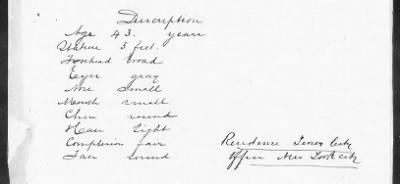 Description
Age 43. years
Stature 5 feet.
Forehead broad
Eyes gray
Nose small
Mouth small
Chin round
Hair light
Complexion fair
Face round
Residence Jersey City
Office New York city